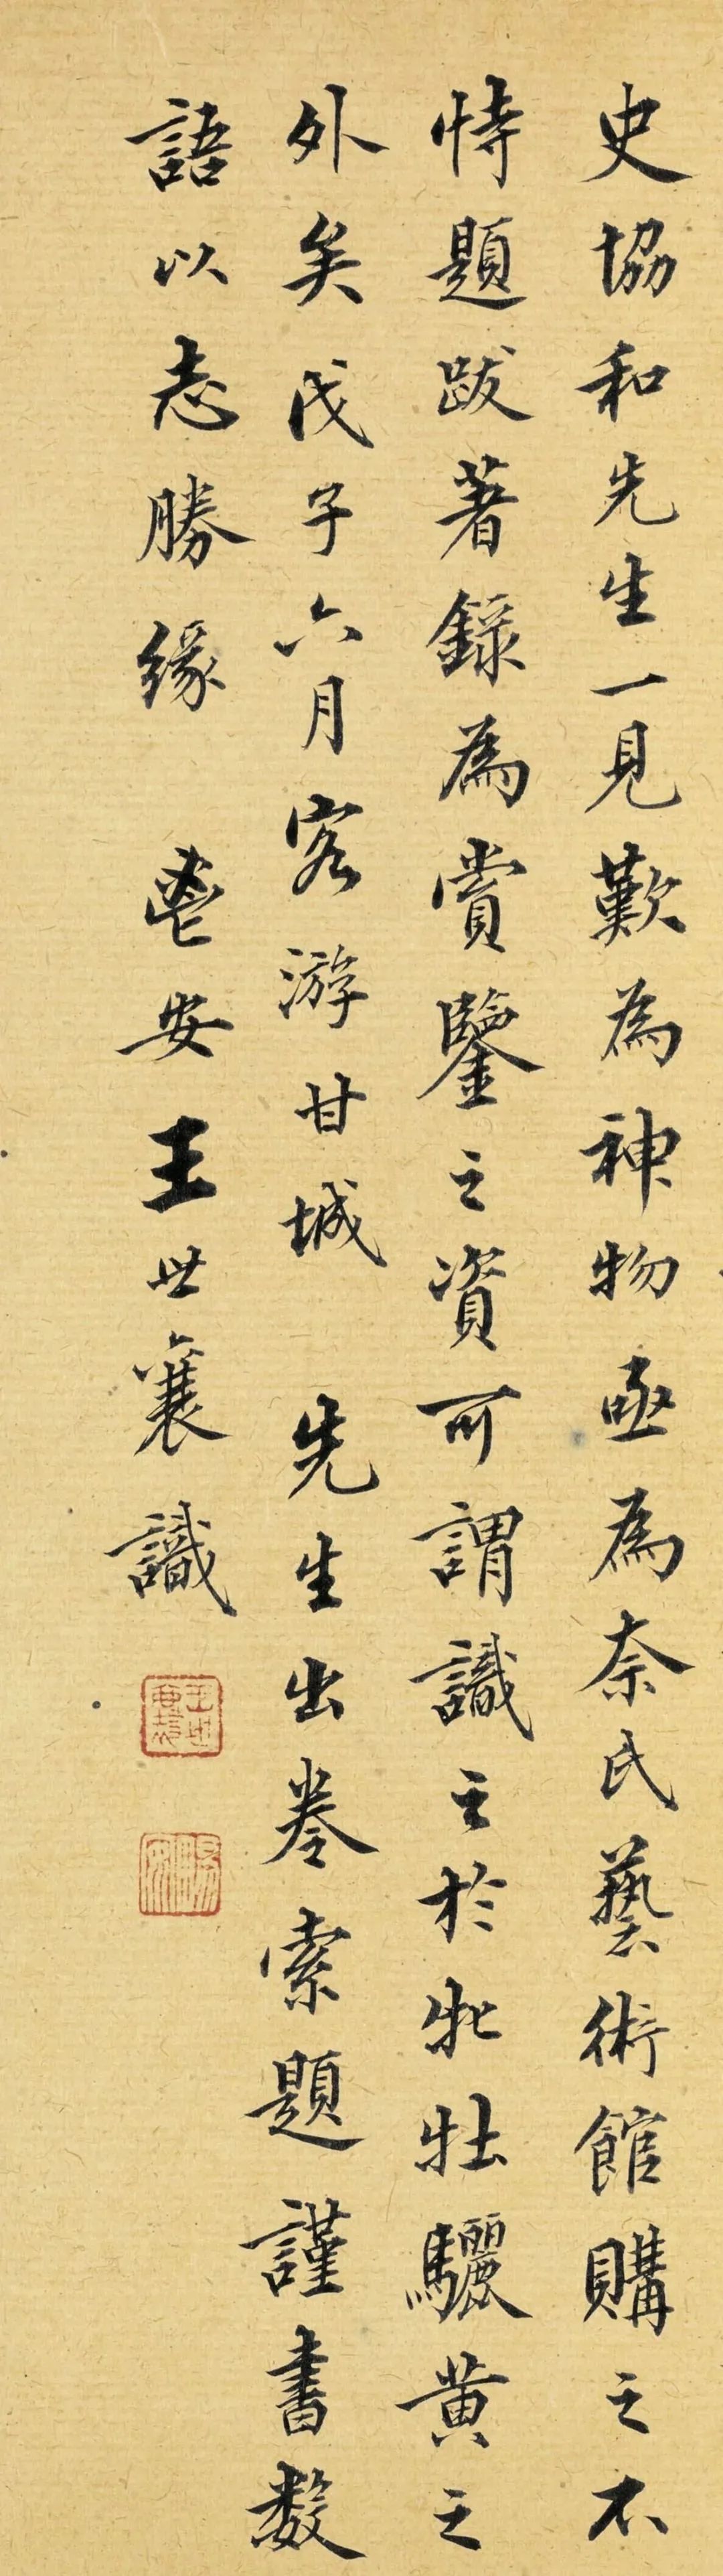 史協和先生一見歎為神物亟為奈氏藝術館購之不
恃題跋著錄為賞鑒之資可謂識之於牝牡驪黄之
外矣戊子六月客游甘城 先生出卷索題謹書数
語以志勝緣 鬯安王世襄識